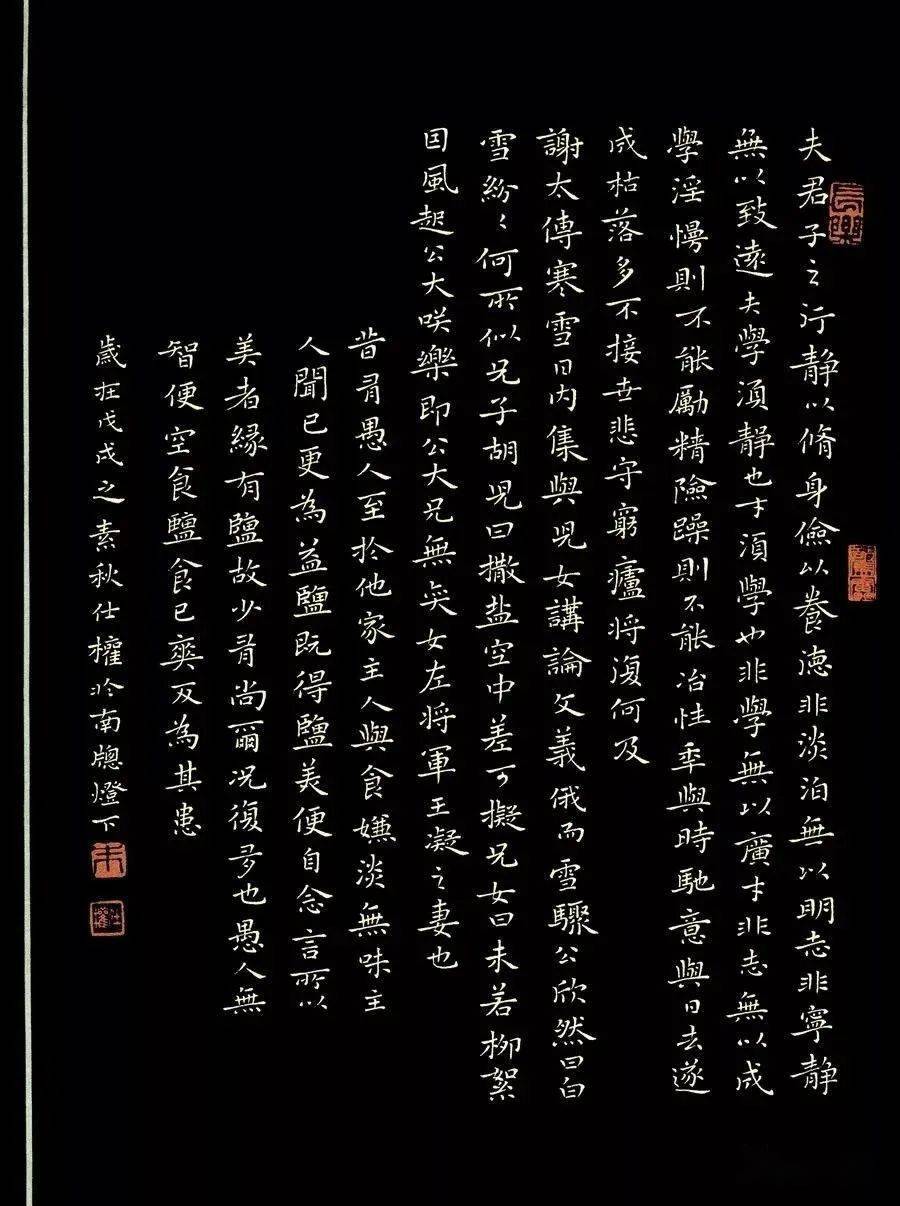 夫君子之行静以脩身儉以養德非淡泊無以明志非寧静
無以致遠夫學須静也才須學也非學無以廣才非志無以成
學淫慢則不能勵精險躁則不能冶性年與時馳意與日去遂
成枯落多不接世悲守窮廬将復何及
謝太傅寒雪日内集與児女講論文義俄而雪驟公欣然曰白
雪紛〻何所似兄子胡児曰撒盐空中差可擬兄女曰未若柳絮
因風起公大咲樂即公大兄無奕女左将軍王凝之妻也
昔有愚人至於他家主人與食嫌淡無味主
人聞已更為益鹽既得鹽美便自念言所以
美者緣有鹽故少有尚爾况復多也愚人無
智便空食鹽食已爽反為其患
歲在戊戌之素秋仕權於南牕燈下
長樂